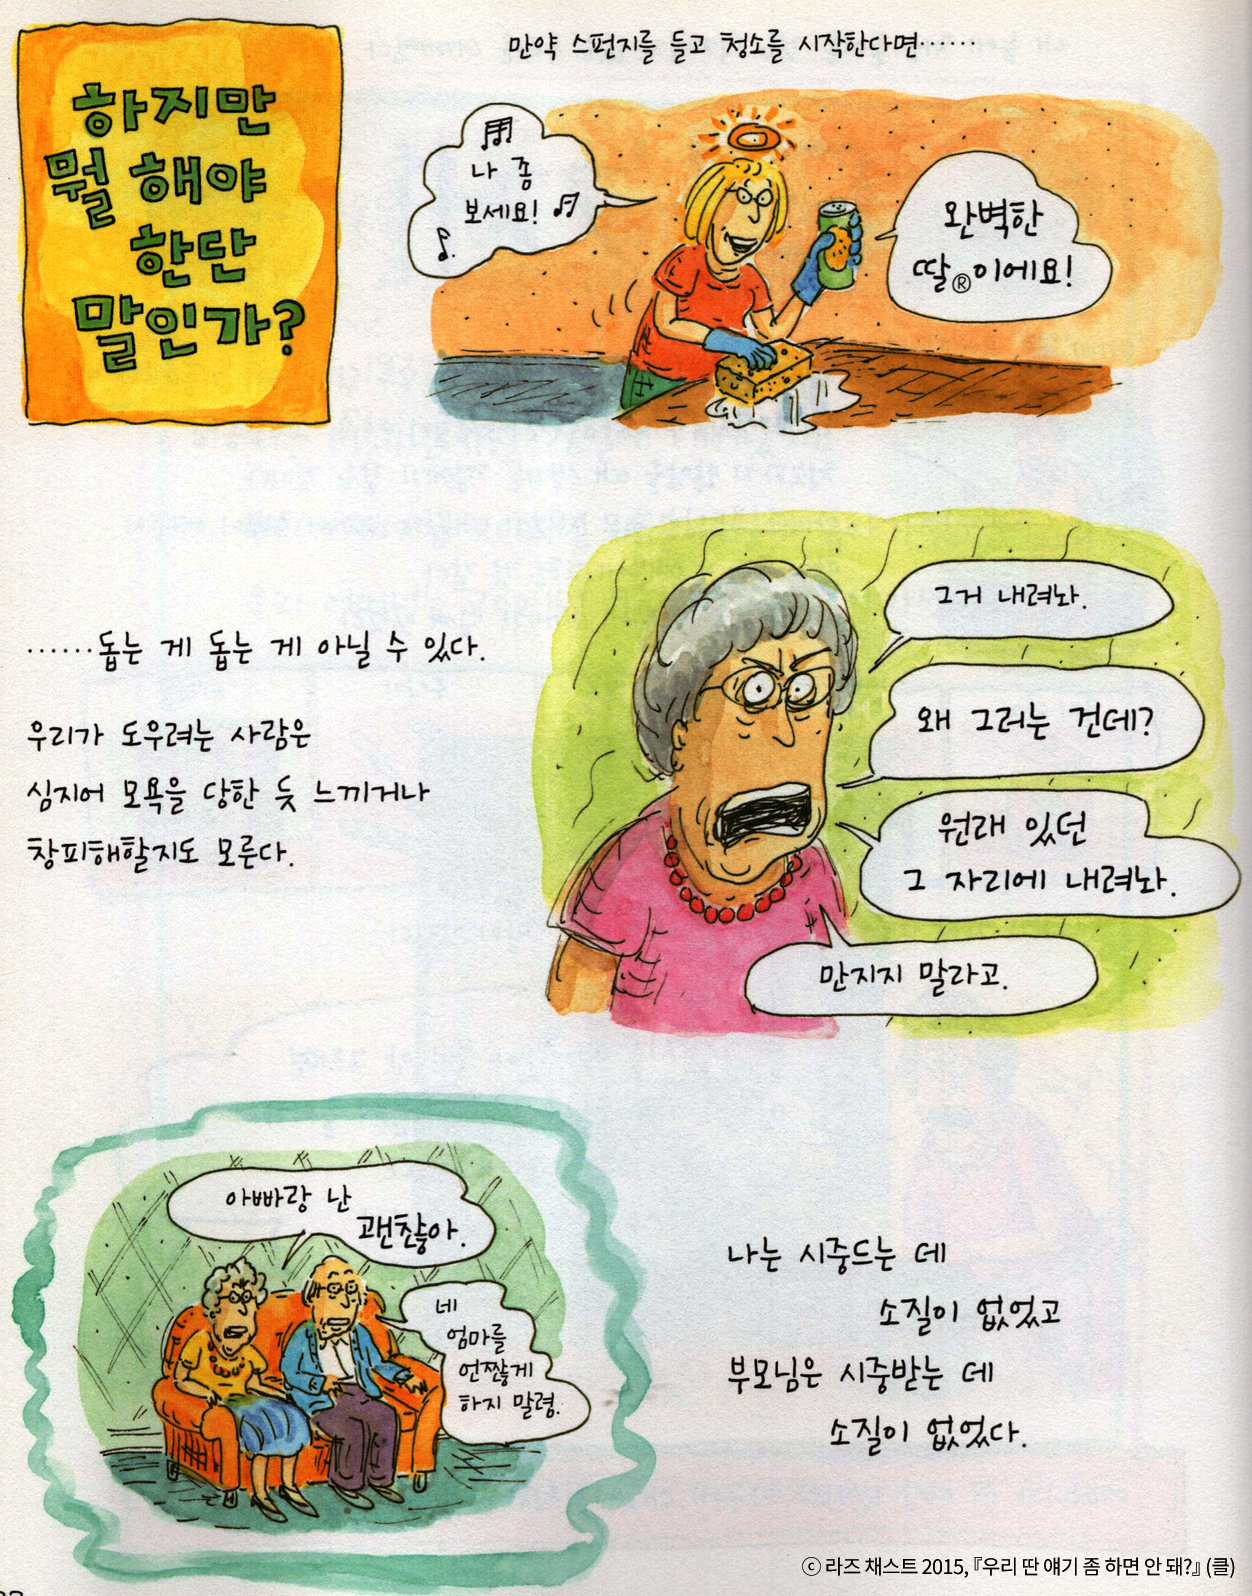 하지만
뭘 해야
한단
말인가?
만약 스펀지를 들고 청소를 시작한다면……
나 좀
보세요!
완벽한
딸®이에요!
……돕는 게 돕는 게 아닐 수 있다.
우리가 도우려는 사람은
심지어 모욕을 당한 듯 느끼거나
창피해할지도 모른다.
그거 내려놔.
왜 그러는 건데?
원래 있던
그 자리에 내려놔.
만지지 말라고.
아빠랑 난
괜찮아.
네
엄마를
언짢게
하지 말렴.
나는 시중드는 데
소질이 없었고
부모님은 시중받는 데
소질이 없었다.
ⓒ 라즈 채스트 2015, 『우리 딴 얘기 좀 하면 안 돼?』 (클)